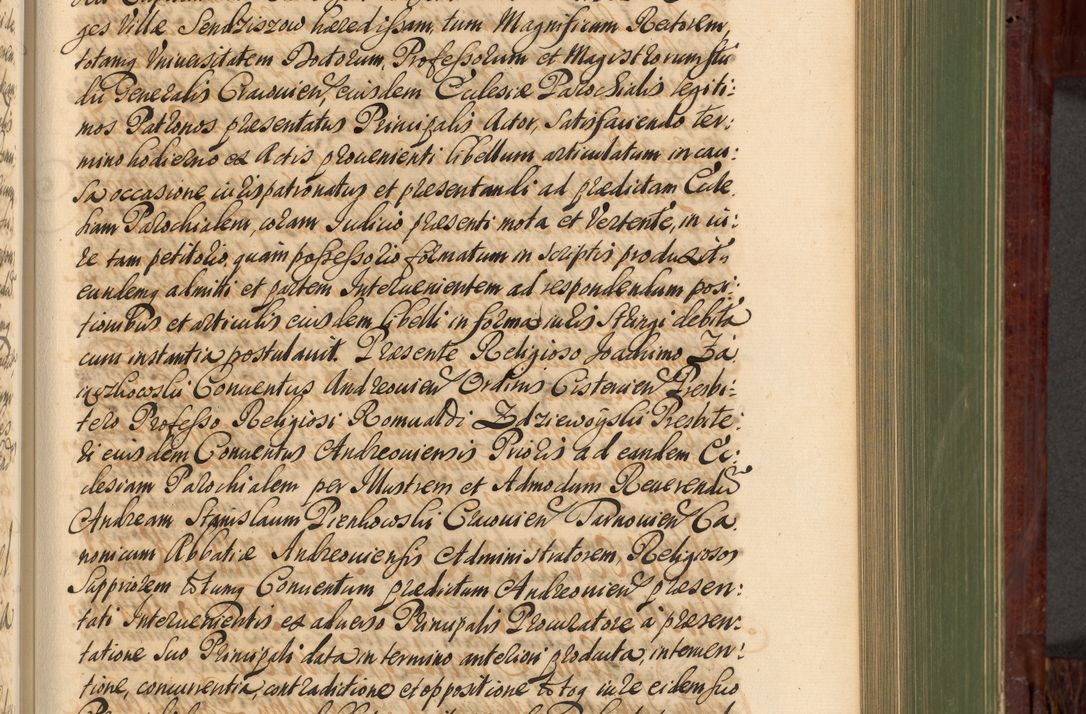 ges Villæ Sendziszow hæredissam, tum Magnificum Rectorem,
totamq Universitatem Doctorum, Professorum et Magistrorum Stu
dii Generalis Cracovien, eiusdem Ecclesiæ Parochialis legiti:
mos Patronos præsentatus Principalis Actor, Satisfaciendo ter:
mino hodierno ex Actis provenienti libellum articulatum in cau:
sa occasione iurispatronatus et præsentandi ad prædictam Eccle
siam Parochialem, coram Iudicio præsenti mota et Vertente, in iu:
re tam petitorio, quam possessorio formatum in scriptis produxit,
eundemq admitti et partem Intervenientem ad respondendum posi:
tionibus et articulis eiusdem libelli in forma iuris Stringi debita
cum instantia postulavit. Præsente Religioso Joachimo Za
Conventus Andreovien Ordinis Cistercien Presbi:
tero Professo Religiosi Romualdi Zdziewoyski Presbite:
ri eiusdem Conventus Andreoviensis Prioris ad eandem Ec:
clesiam Parochialem per Illustrem et Admodum Reverendū
Andream Stanislaum Pienkowski Cracovien Tarnovien Ca
nonicum Abbatiæ Andreoviensis Administratorem, Religiosos
Suppriorem totumq Conventum prædictum Andreovien præsen:
tati Intervenientis ex adverso Principalis Procuratore à præsen:
tatione suo Principali data in termino anteriori producta, interven:
tione, concurrentia, contradictione et oppositione totoq iure eidem suo